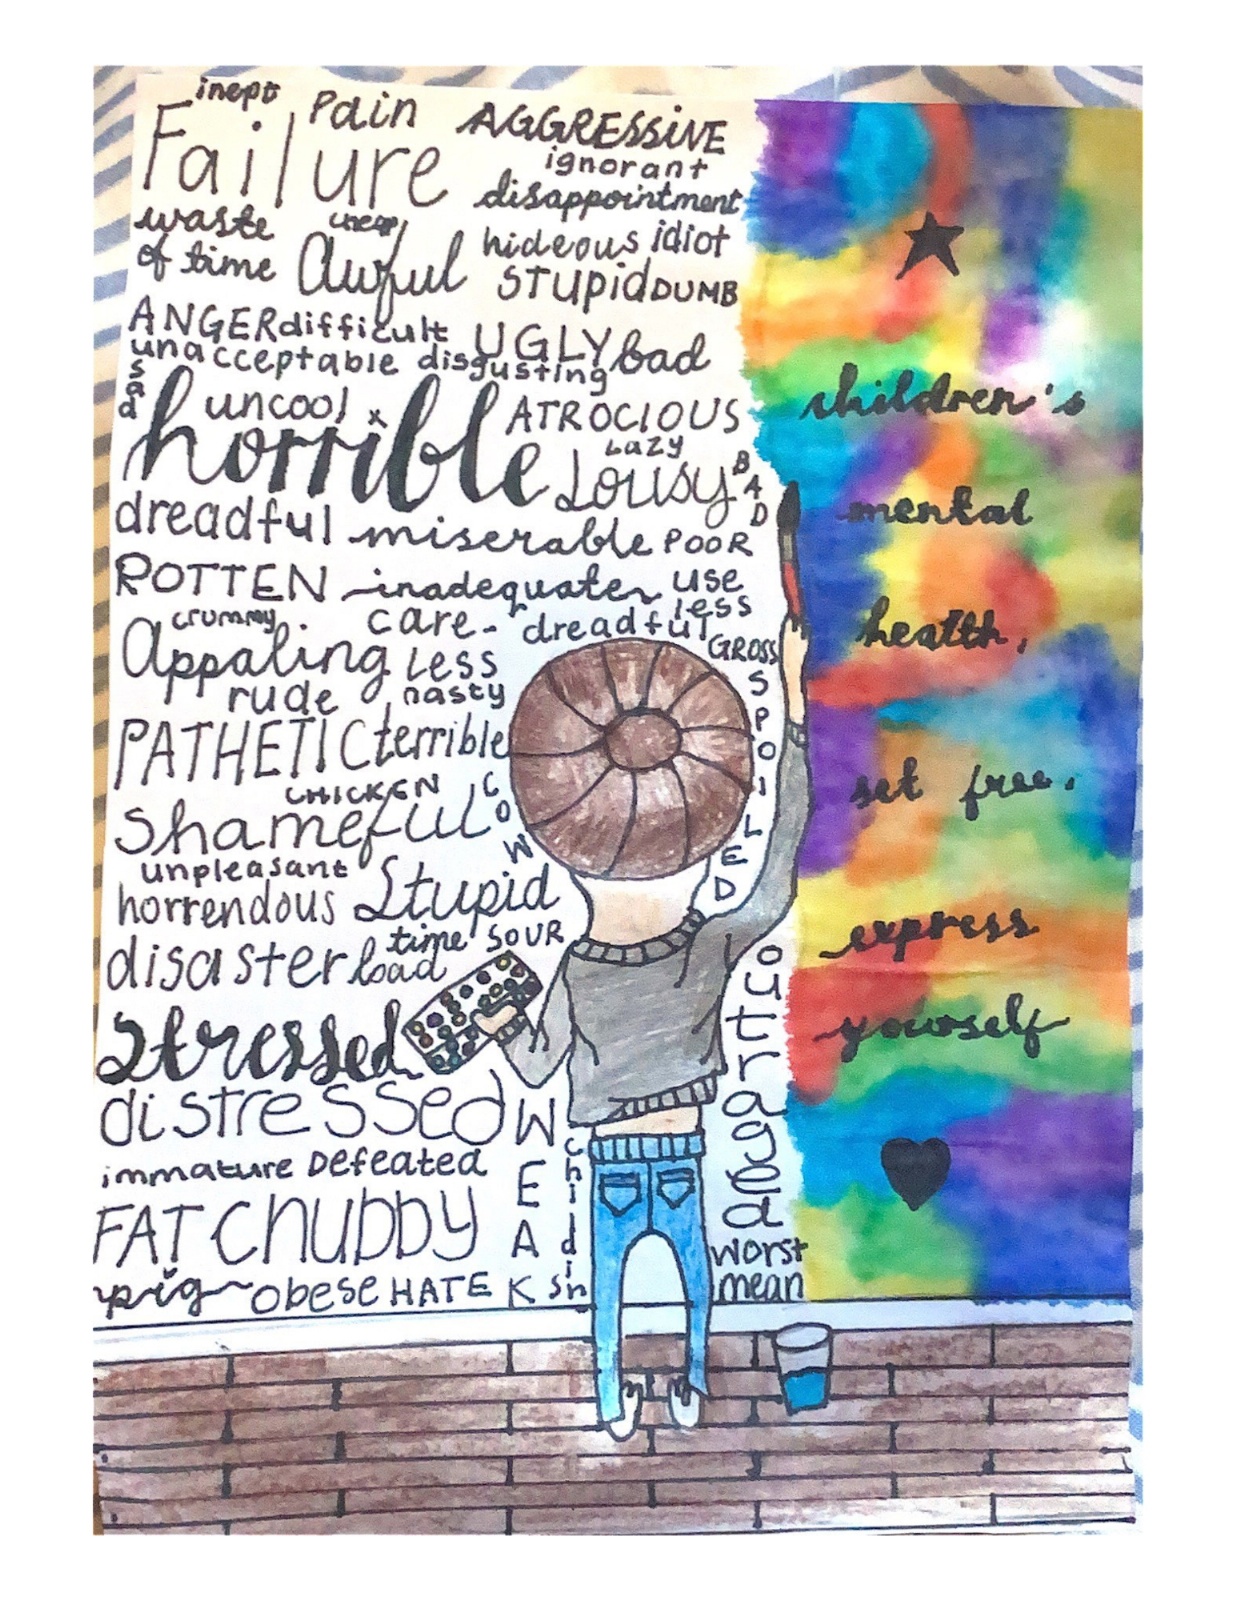 inept
Pain
AGGRESSiVE
Failure
ignorant
disappointment
waste
of time
Awful
hideous idiot
stupid DUMB
ANGER difficult UGLY bad
unacceptable disgusting
sad
uncool
horrible
ATROCIOUS
LaZy
Lousy
BAD
dreadful miserable POOR
ROTTEN inadequate use
less
crummy
Appaling
care-
Less
dreadful
GROSS
rude nasty
PATHETIC terrible
SPOILED
CHICKEN
shameful
COW
unpleasant
horrendous Stupid
disaster
time SOUR
load
Stressed
distressed
WEAK
immature Defeated
FAT Chubby
pig obese HATE
outraged
worst
mean
children's
mental
health,
set free.
express
yourself